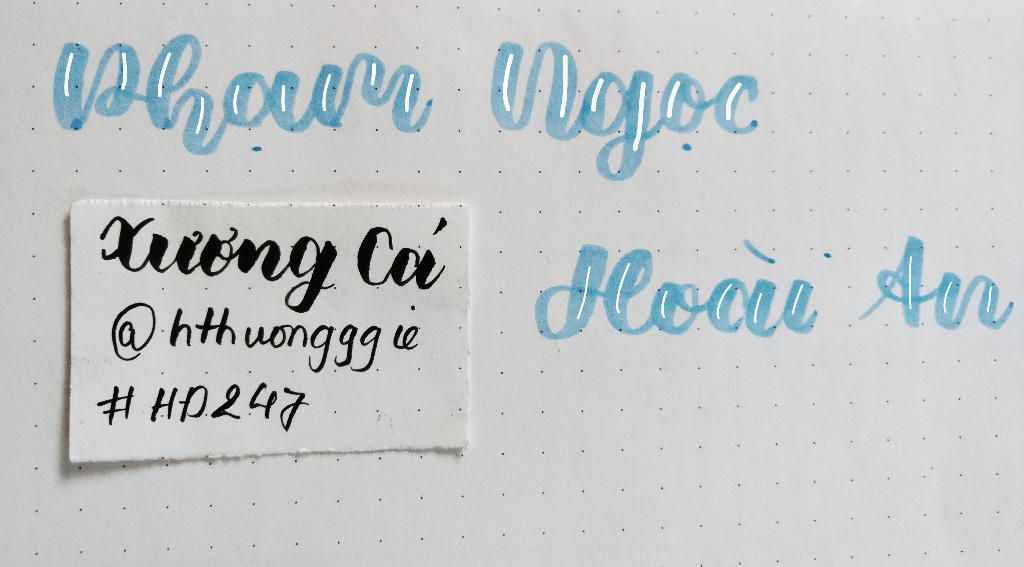 Phạm Ngọc
Hoài An
Xương Cá
@hthuongggie
#HD247